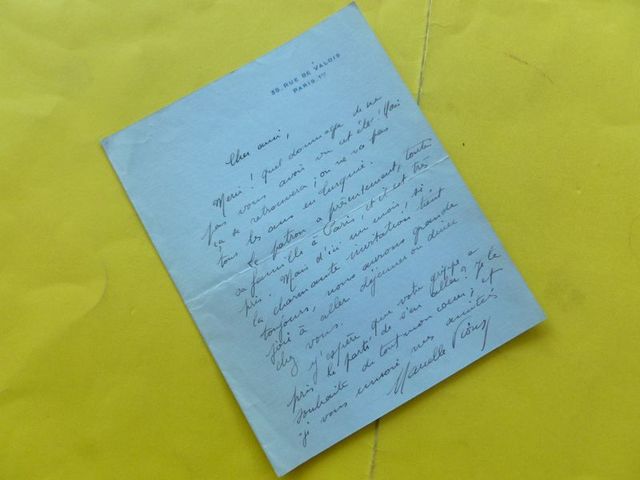 35, RUE DE VALOIS
PARIS. 1er
Cher ami,
Merci ! Quel dommage de ne
pas vous avoir vu cet été ! Mais
ça se retrouvera ; on ne va pas
tous les ans en Turquie.
Le patron a présentement, toute
sa famille à Paris, et il est très
pris. Mais d'ici un mois, si
la charmante invitation tient
toujours, nous aurons grande
joie à aller déjeuner ou dîner
chez vous.
J'espère que votre grippe a
pris le parti de s'en aller ? Je le
souhaite de tout mon coeur ; et
je vous envoie mes amitiés
Marcelle